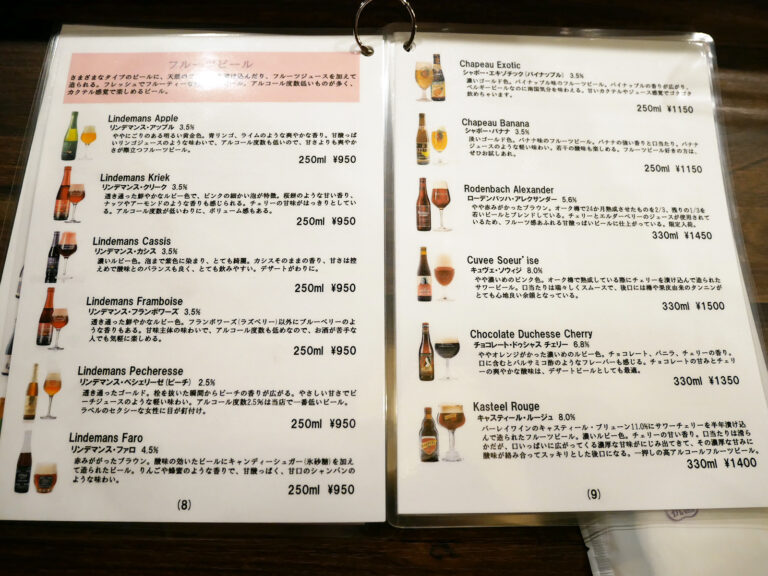 フルーツビール
さまざまなタイプのビールに、天然の
け込んだり、フルーツジュースを加えて
造られる。フレッシュでフルーティーな
ール。アルコール度数低いものが多く、
カクテル感覚で楽しめるビール。
Lindemans Apple
リンデマンス・アップル 3.5%
ややにごりのある明るい黄金色。青リンゴ、ライムのような爽やかな香り。甘酸っぱ
いリンゴジュースのような味わいで、アルコール度数も低いので、甘さよりも爽やか
さが際立つフルーツビール。
250ml ¥950
Lindemans Kriek
リンデマンス・クリーク 3.5%
透き通った鮮やかなルビー色で、ピンクの細かい泡が特徴。桜餅のような甘い香り、
ナッツやアーモンドのような香りも感じられる。チェリーの甘味がはっきりとしてい
る。アルコール度数が低いわりに、ボリューム感もある。
250ml ¥950
Lindemans Cassis
リンデマンス・カシス 3.5%
濃いルビー色。泡まで紫色に染まり、とても綺麗。カシスそのままの香り、甘さは控
えめで酸味とのバランスも良く、とても飲みやすい。デザートがわりに。
250ml ¥950
Lindemans Framboise
リンデマンス・フランボワーズ 3.5%
透き通った鮮やかなルビー色。フランボワーズ(ラズベリー)以外にブルーベリーのよう
な香りもある。甘味主体の味わいで、アルコール度数も低めなので、お酒が苦手な
人でも気軽に楽しめる。
250ml ¥950
Lindemans Pecheresse
リンデマンス・ペシェリーゼ(ピーチ) 2.5%
透き通ったゴールド。栓を抜いた瞬間からピーチの香りが広がる。やさしい甘さでピ
ーチジュースのような軽い味わい。アルコール度数2.5%は当店で一番低いビール。
ラベルのセクシーな女性に目が釘付け。
250ml ¥950
Lindemans Faro
リンデマンス・ファロ 4.5%
赤みががったブラウン。酸味の効いたビールにキャンディーシュガー(氷砂糖)を加え
て造られたビール。りんごや蜂蜜のような香りで、甘酸っぱく、甘口のシャンパンの
ような味わい。
250ml ¥950
(8)
Chapeau Exotic
シャポー・エキゾチック(パイナップル) 3.5%
濃いゴールド色。パイナップル味のフルーツビール。パイナップルの香りが広がり、
ベルギービールなのに南国気分を味わえる。甘いカクテルやジュース感覚でゴクゴク
飲めちゃいます。
250ml ¥1150
Chapeau Banana
シャポー・バナナ 3.5%
淡いゴールド色。バナナ味のフルーツビール。バナナの強い香りと口当たり。バナナ
ジュースのような軽い味わい。若干の酸味も楽しめる。フルーツビール好きの方は、
ぜひお試しあれ。
250ml ¥1150
Rodenbach Alexander
ローデンバッハ・アレクサンダー 5.6%
やや赤みかかったブラウン。オーク樽で24か月熟成させたものを2/3、残りの1/3を
若いビールとブレンドしている。チェリーとエルダーベリーのジュースが使用されて
いるため、フルーツ感あふれる甘酸っぱいビールに仕上がっている。限定入荷。
330ml ¥1450
Cuvee Soeur'ise
キュヴェ・ソウィジ 8.0%
やや濃いめのピンク色。オーク樽で熟成している際にチェリーを漬け込んで造られた
サワービール。口当たりは瑞々しくスムースで、後口には樽や果皮由来のタンニンが
とても心地良い余韻となっている。
330ml ¥1500
Chocolate Duchesse Cherry
チョコレート・ドゥシャス チェリー 6.8%
ややオレンジがかった濃いめのルビー色。チョコレート、バニラ、チェリーの香り。
口に含むとバルサミコ酢のようなフレーバーも感じる。チョコレートの甘みとチェリ
ーの爽やかな酸味は、デザートビールとしても最適。
330ml ¥1350
Kasteel Rouge
キャスティール・ルージュ 8.0%
バーレイワインのキャスティール・ブリューン11.0%にサワーチェリーを半年漬け込
んで造られたフルーツビール。濃いルビー色。チェリーの甘い香り。口当たりは滑ら
かだが、口いっぱいに広がってくる濃厚な甘味がにじみ出てきて、その濃厚な甘みに
酸味が絡み合ってスッキリとした後口になる。一押しの高アルコールフルーツビール。
330ml ¥1400
(9)